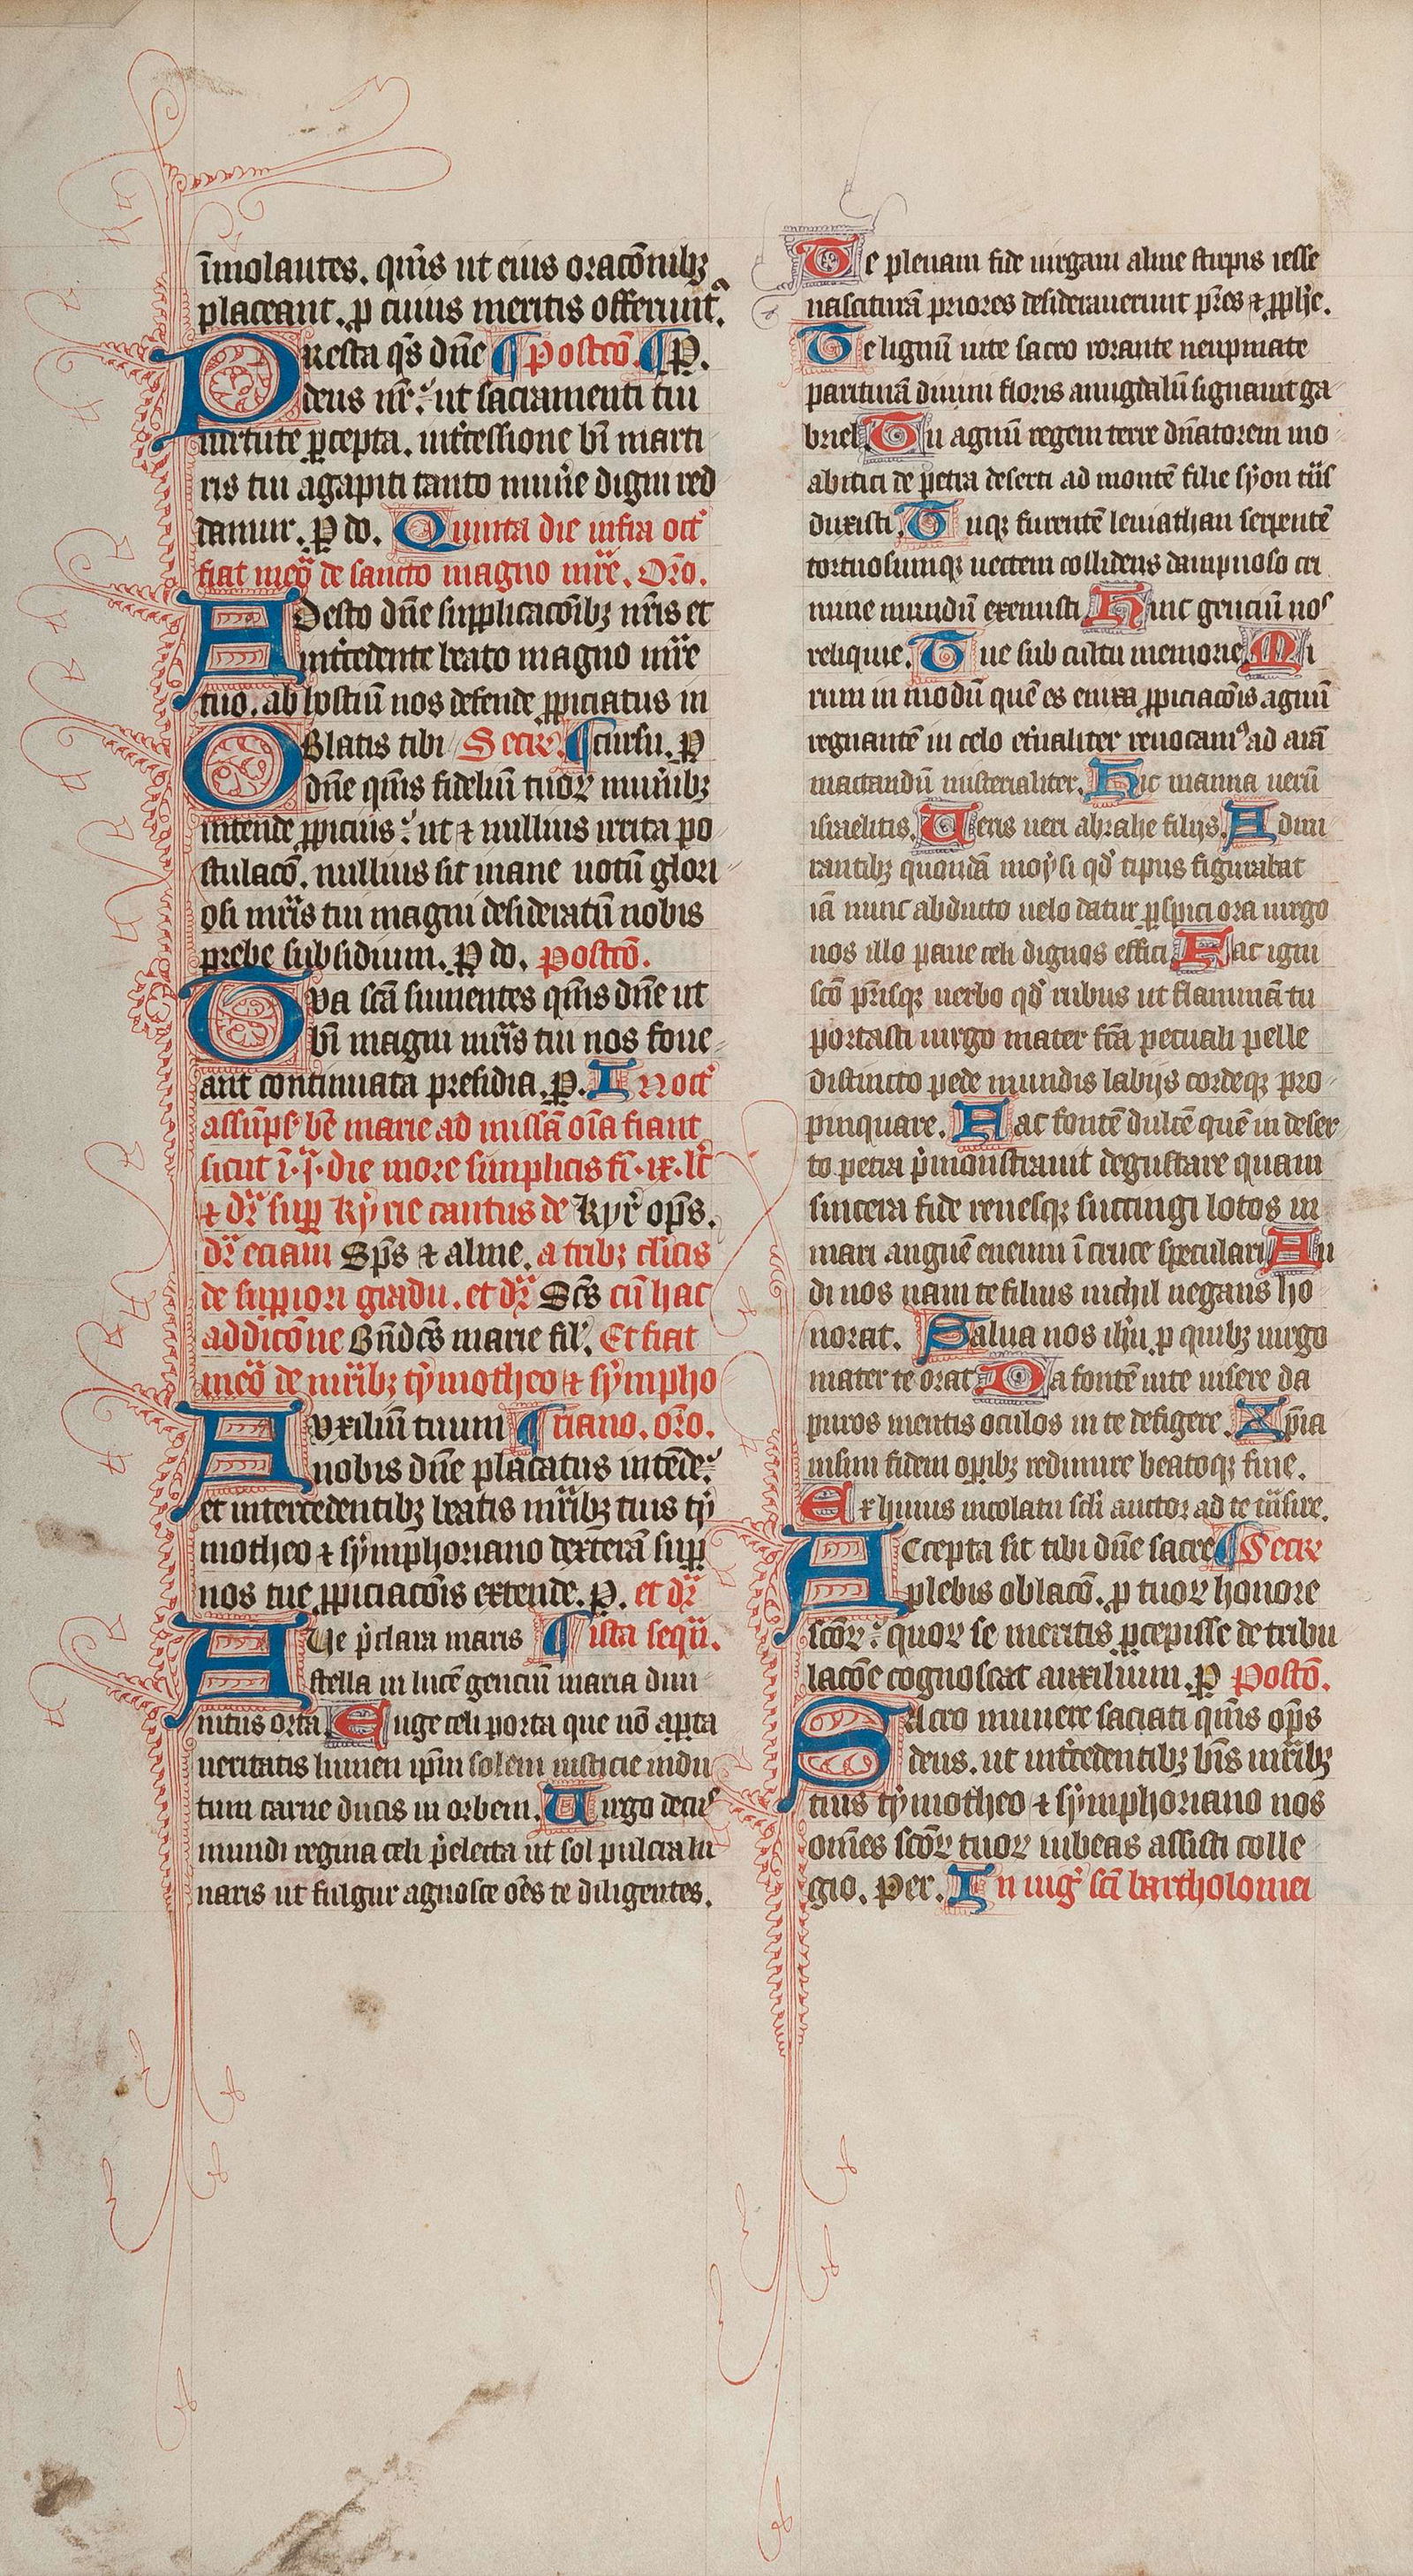 īmolantes. quīs ut eius oracōnibꝫ
placeant. ꝑ cuius meritis offerunt᷑.
Presta qs̄ dn̄e ¶ Postcō. ¶ P̱.
deus nr̄. ut sacramenti tui
uirtute ꝑcepta. int̄cessione bī marti
ris tui agapiti tanto mun̄e digni red
damur. P̱ do. Quinta die infra oct̄
fiat mem̄ de sancto magno mr̄e. Or̄o.
Adesto dn̄e supplicacōibꝫ nr̄is et
int̄cedente beato magno mr̄e
tuo. ab hostiū nos defende ꝓpiciatus in
OBlatis tibi Secre. ¶ cursu. P̱
dn̄e qm̄s fideliū tuoꝝ mun̄ibꝫ
intende ꝓpicius. ut ⁊ nullius irrita po
stulacō. nullius sit inane uotū glori
osi mr̄is tui magni desideratū nobis
prebe subsidium. P̱ do. Postcō.
Tua scā sumentes qm̄s dn̄e ut
bī magni mr̄is tui nos foue
ant continuata presidia. P̱. In oct̄
assūpt̄ bē marie ad missā oīa fiant
sicut ī .i. die more simplicis fī .ix. lc̄
⁊ dr̄ sup kyrie cantus de kyr̄ ops̄.
dr̄ eciam Sps̄ ⁊ alme. a tribꝫ cl̄icis
de supiori gradu. et dr̄ Scs̄ cū hac
addicōne Bn̄dcs̄ marie fil. Et fiat
mem̄ de mr̄ibꝫ tẏmotheo ⁊ sẏmpho
Auxiliū tuum ¶ riano. or̄o.
nobis dn̄e placatus intēde.
et intercedentibꝫ beatis mr̄ibꝫ tuis tẏ
motheo ⁊ sẏmphoriano dexterā sup
nos tue ꝓpiciacōis extende. P̱. et dr̄
AUe p̄clara maris ¶ ista seqū.
stella in lucē genciū maria diui
nitus orta Euge celi porta que nō aꝑta
ueritatis lumen ip̄m solem iusticie indu
tum carne ducis in orbem. Uirgo decus
mundi regina celi p̄electa ut sol pulcra lu
naris ut fulgur agnosce oēs te diligentes.
Te plenam fide uirgam alme stirpis iesse
nasciturā priores desiderauerunt pr̄es ⁊ ꝓphe.
Te lignū uite sacro rorante neupmate
parituram diuini floris amigdalū signauit ga
briel Tu agnū regem terre dn̄atorem mo
abitici de petra deserti ad montē filie sẏon t̄ns
duxisti. Tuqꝫ furentē leuiathan serpentē
tortuosumqꝫ uectem collidens dampnoso cri
mine mundū exemisti Hinc genciū nos
reliquie. Tue sub cultu memorie Mi
rum in modū quē es enixa ꝓpiciacōis agnū
regnantē in celo et̄naliter reuocamꝰ ad arā
mactandū misterialiter. Hic manna uerū
israelitis. Ueris ueri abrahe filijs. Admi
rantibꝫ quondā moẏsi qd̄ tipus figurabat
iā nunc abducto uelo datur ꝑspici ora uirgo
nos illo pane celi dignos effici Fac igni
scō pr̄isqꝫ uerbo qd̄ rubus ut flammā tu
portasti uirgo mater fcā pecuali pelle
distincto pede mundis labijs cordeqꝫ pro
pinquare. Fac fontē dulcē quē in deser
to petra p̄monstrauit degustare quam
sincera fide renesqꝫ succingi lotos in
mari anguē eneum ī cruce speculari Au
di nos nam te filius nichil negans ho
norat. Salua nos ih̄u. ꝑ quibꝫ uirgo
mater te orat Da fontē uite uisere da
puros mentis oculos in te defigere. Xp̄ia
nisin̄ fidem oꝑibꝫ redimire beatoqꝫ fine.
Ex huius incolatu scl̄i auctor ad te t̄nsire.
ACcepta sit tibi dn̄e sacre ¶ Secre
plebis oblacō. ꝑ tuoꝝ honore
scōꝝ. quoꝝ se meritis ꝑcepisse de tribu
lacōe cognoscat auxilium. P̱ Postcō.
SAcro munere saciati qm̄s ops̄
deus. ut int̄cedentibꝫ bīs mr̄ibꝫ
tuis tẏmotheo ⁊ sẏmphoriano nos
omn̄es scōꝝ tuoꝝ iubeas assisti colle
gio. Per. In uiḡ sc̄i bartholomei